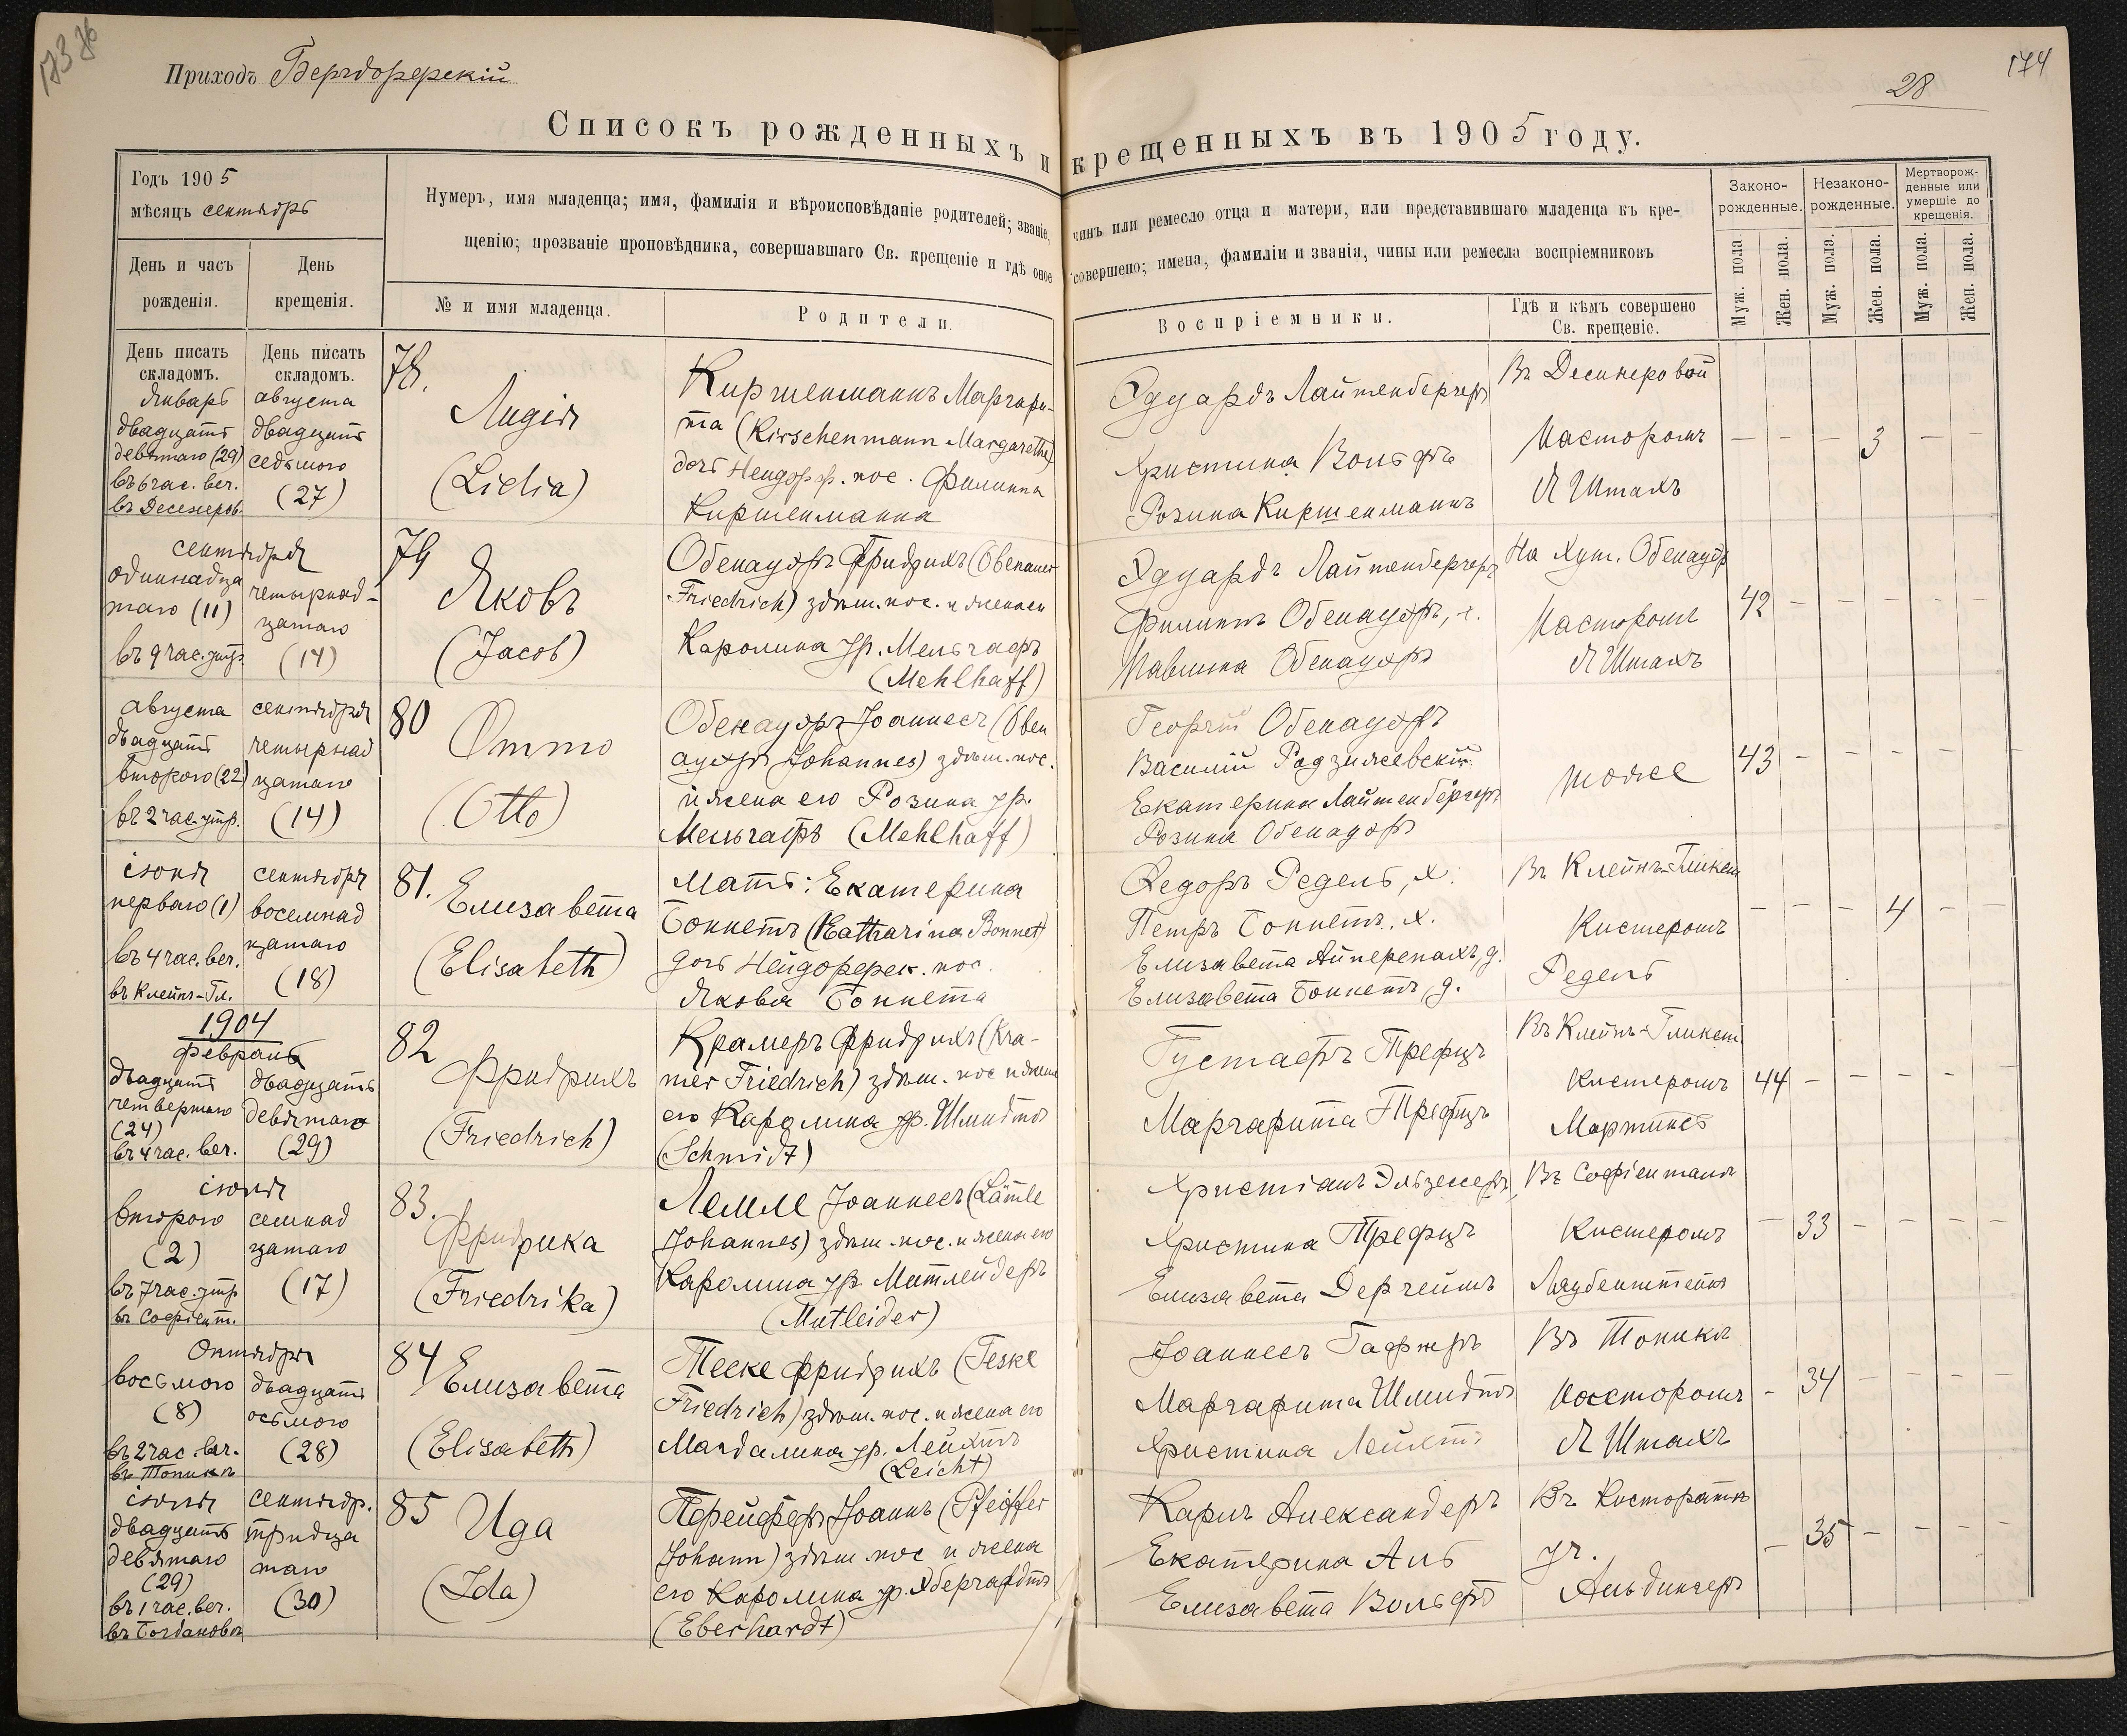 Приходъ Бергдорфскій
28
174
Списокъ рожденныхъ и крещенныхъ въ 1905 году.
Годъ 1905
мѣсяцъ сентябрь
День и часъ рожденія.
День крещенія.
Нумеръ, имя младенца; имя, фамилія и вѣроисповѣданіе родителей; званіе, чинъ или ремесло отца и матери, или представившаго младенца къ кре-
щенію; прозваніе проповѣдника, совершавшаго Св. крещеніе и гдѣ оное совершено; имена, фамиліи и званія, чины или ремесла воспріемниковъ
№ и имя младенца.
Родители.
Воспріемники.
Гдѣ и кѣмъ совершено
Св. крещеніе.
Законо-
рожденные.
Незаконо-
рожденные.
Мертворож-
денные или
умершіе до
крещенія.
Муж. пола.
Жен. пола.
Муж. пола.
Жен. пола.
Муж. пола.
Жен. пола.
День писать
складомъ.
День писать
складомъ.
Январь
двадцать
девятаго (29)
въ 6 час. веч.
въ Десенеров.
августа
двадцать
седьмого
(27)
78.
Лидія
(Lidia)
Киршенманнъ Маргари-
та (Kirschenmann Margarethe)
дочь Нейдорф. пос. Филиппа
Киршенманна
Эдуардъ Лайтенбергеръ
Христина Вольфъ
Розина Киршенманнъ
Въ Десинеровой
Пасторомъ
Я Штахъ
— — — 3 — —
сентября
одиннадца
таго (11)
въ 9 час. утр.
четырнад-
цатаго
(14)
79
Яковъ
(Jacob)
Обенауэръ Фридрихъ (Obenauer
Friedrich) здѣш. пос. и жена его
Каролина ур. Мельгафъ
(Mehlhaff)
Эдуардъ Лайтенбергеръ
Филиппъ Обенауэръ, х.
Павлина Обенауэръ
На хут. Обенауэр
Пасторомъ
Я Штахъ
42 — — — — —
августа
двадцать
второго (22)
въ 2 час. утр.
сентября
четырнад
цатаго
(14)
80
Отто
(Otto)
Обенауэръ Іоаннесъ (Oben
ауэръ Johannes) здѣш. пос.
и жена его Розина ур.
Мельгафъ (Mehlhaff)
Георгій Обенауэръ
Василій Радзижевскій
Екатерина Лайтенбергеръ
Розина Обенауэръ
тоже
43 — — — — —
іюня
перваго (1)
въ 4 час. веч.
въ Клейнъ-Гл.
сентября
восемнад
цатаго
(18)
81.
Елизавета
(Elisabeth)
Мать: Екатерина
Боннетъ (Katharina Bonnet)
дочь Нейдорфск. пос.
Якова Боннета
Федоръ Редель, х.
Петръ Боннетъ, х.
Елизавета Айсперепахъ, д.
Елизавета Боннетъ, д.
Въ Клейнъ-Гликст
Кистеромъ
Редель
— — — 4 — —
1904
февраль
двадцать
четвертаго
(24)
въ 4 час. веч.
двадцать
девятаго
(29)
82
Фридрихъ
(Friedrich)
Крамеръ Фридрихъ (Kra-
mer Friedrich) здѣш. пос и жена
его Каролина ур. Шмидтъ
(Schmidt)
Густафъ Трефцъ
Маргарита Трефцъ
Въ Клейнъ-Гликст
Кистеромъ
Мартинсъ
44 — — — — —
іюня
второго
(2)
въ 7 час. утр
въ Софіент.
семнад
цатаго
(17)
83.
Фридрика
(Friedrika)
Лемле Іоаннесъ (Lämle
Johannes) здѣш. пос. и жена его
Каролина ур. Митлейдеръ
(Mitleider)
Христіанъ Эльзессеръ
Христина Трефцъ
Елизавета Дергеймъ
Въ Софіенталѣ
Кистеромъ
Лаубенштейнъ
— 33 — — — —
Октября
восьмого
(8)
въ 2 час. веч.
въ Топикѣ
двадцать
осьмого
(28)
84
Елизавета
(Elisabeth)
Теске Фридрихъ (Teske
Friedrich) здѣш. пос. и жена его
Магдалина ур. Лейхтъ
(Leicht)
Іоаннесъ Гафнеръ
Маргарита Шмидтъ
Христина Лейхтъ
Въ Топикѣ
Пасторомъ
Я Штахъ
— 34 — — — —
іюня
двадцать
девятаго
(29)
въ 1 час. веч.
въ Богдановкѣ
сентябр.
тридца
таго
(30)
85
Ида
(Ida)
Пфейферъ Іоаннъ (Pfeiffer
Johann) здѣш. пос и жена
его Каролина ур. Эбергардтъ
(Eberhardt)
Карлъ Александеръ
Екатерина Аль
Елизавета Вольфъ
Въ Пасторатѣ
уч.
Альдингеръ
— 35 — — — —